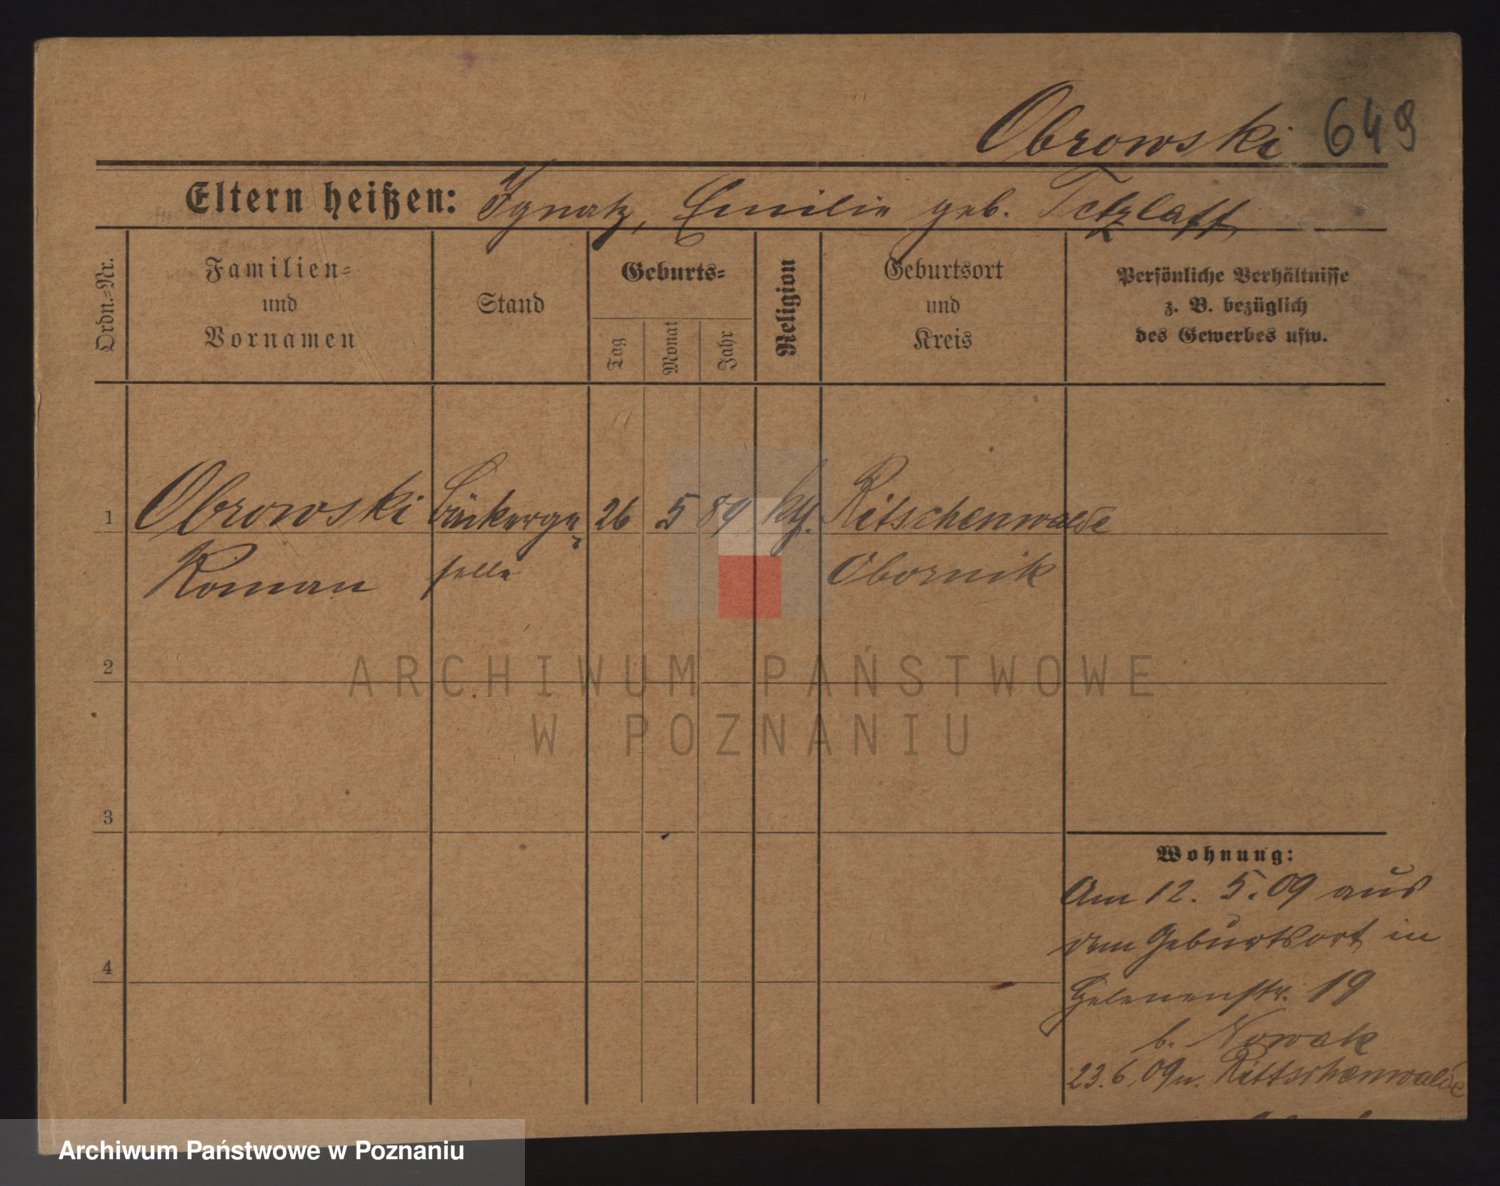 Obrowski 649
Eltern heißen: Ignatz, Emilie geb. Tetzlaff
Ordn.=Nr.
Familien=
und
Vornamen
Stand
Geburts=
Tag
Monat
Jahr
Religion
Geburtsort
und
Kreis
Persönliche Verhältnisse
z. B. bezüglich
des Gewerbes usw.
1 Obrowski Bäckerge 26 5 89 kth. Ritschenwalde
Roman selle Obornik
2
ARCHIWUM PAŃSTWOWE
W POZNANIU
3
Wohnung:
Am 12. 5. 09 aus
dem Geburtsort in
4
Helenenstr. 19
b. Nowak
23.6.09 n. Rittschenwalde
Archiwum Państwowe w Poznaniu